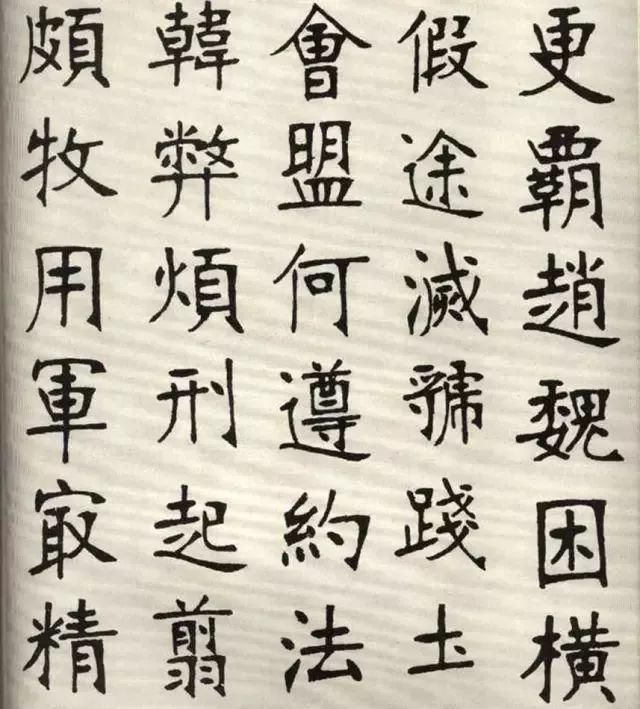 更覇趙魏困橫
假途滅虢踐土
會盟何遵約法
韓弊煩刑起翦
頗牧用軍㝡精